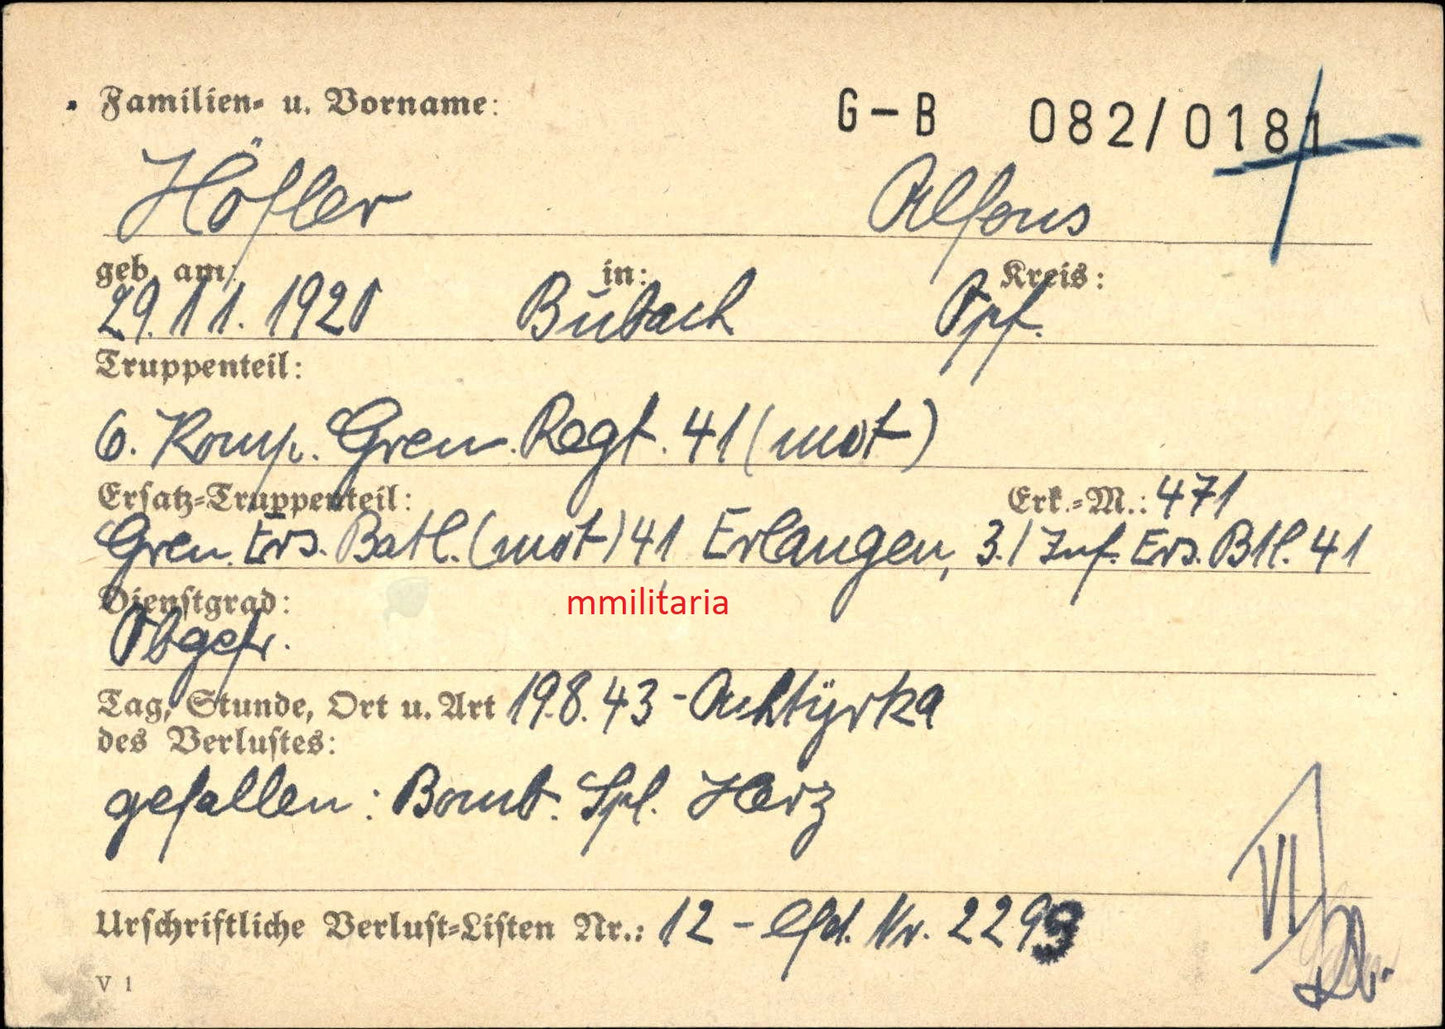 Familien- u. Vorname: G-B 082/0181
Höfler Alfons
geb. am: in: Kreis:
29.11.1920 Bubach Opf.
Truppenteil:
6. Komp. Gren. Regt. 41 (mot)
Ersatz-Truppenteil: Erk.-M.: 471
Gren. Ers. Batl. (mot) 41 Erlangen, 3./Inf. Ers. Btl. 41
Dienstgrad:
mmilitaria
Obgefr.
Tag, Stunde, Ort u. Art 19.8.43 - Achtyrka
des Verlustes:
gefallen: Bomb. Spl. Herz
VI
Urschriftliche Verlust-Listen Nr.: 12 - lfd. Nr. 2299
V 1